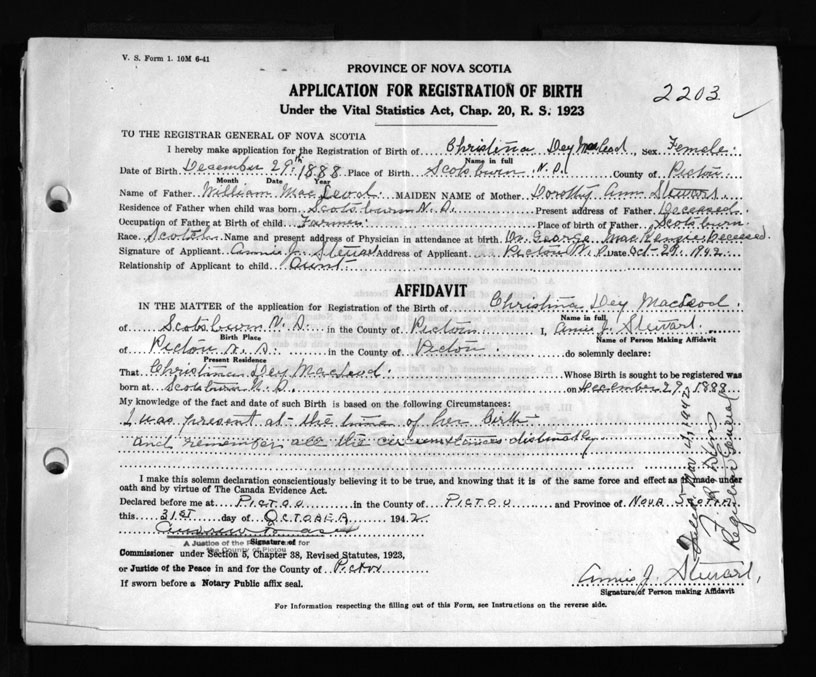 V. S. Form 1. 10M 6-41
PROVINCE OF NOVA SCOTIA
APPLICATION FOR REGISTRATION OF BIRTH
2203
Under the Vital Statistics Act, Chap. 20, R. S. 1923
TO THE REGISTRAR GENERAL OF NOVA SCOTIA
I hereby make application for the Registration of Birth of Christina Dey MacLeod, Sex Female
Name in full
Date of Birth December 29th 1888 Place of Birth Scotsburn N.S. County of Pictou
Month Date Year
Name of Father William MacLeod MAIDEN NAME of Mother Dorothy Ann Stewart
Residence of Father when child was born Scotsburn N.S. Present address of Father Deceased
Occupation of Father at Birth of child Farmer Place of birth of Father Scotsburn
Race Scotch Name and present address of Physician in attendance at birth Dr. George MacKenzie Deceased
Signature of Applicant Annie J. Stewart Address of Applicant Pictou N.S. Date Oct 29, 1942
Relationship of Applicant to child Aunt
AFFIDAVIT
IN THE MATTER of the application for Registration of the Birth of Christina Dey MacLeod
Name in full
of Scotsburn N.S. in the County of Pictou I, Annie J. Stewart
Birth Place Name of Person Making Affidavit
of Pictou N.S. in the County of Pictou do solemnly declare:
Present Residence
That Christina Dey MacLeod Whose Birth is sought to be registered was
born at Scotsburn N.S. on December 29, 1888
My knowledge of the fact and date of such Birth is based on the following Circumstances:
I was present at the time of her Birth
and remember all the circumstances distinctly
I make this solemn declaration conscientiously believing it to be true, and knowing that it is of the same force and effect as if made under
oath and by virtue of The Canada Evidence Act.
Declared before me at PICTOU in the County of PICTOU and Province of NOVA SCOTIA
this 31ST day of OCTOBER 1942
Signature of
A Justice of the for
the County of Pictou
Commissioner under Section 5, Chapter 38, Revised Statutes, 1923,
or Justice of the Peace in and for the County of Pictou
If sworn before a Notary Public affix seal.
Annie J. Stewart
Signature of Person making Affidavit
For Information respecting the filling out of this Form, see Instructions on the reverse side.
Nov. 1942
Registrar General